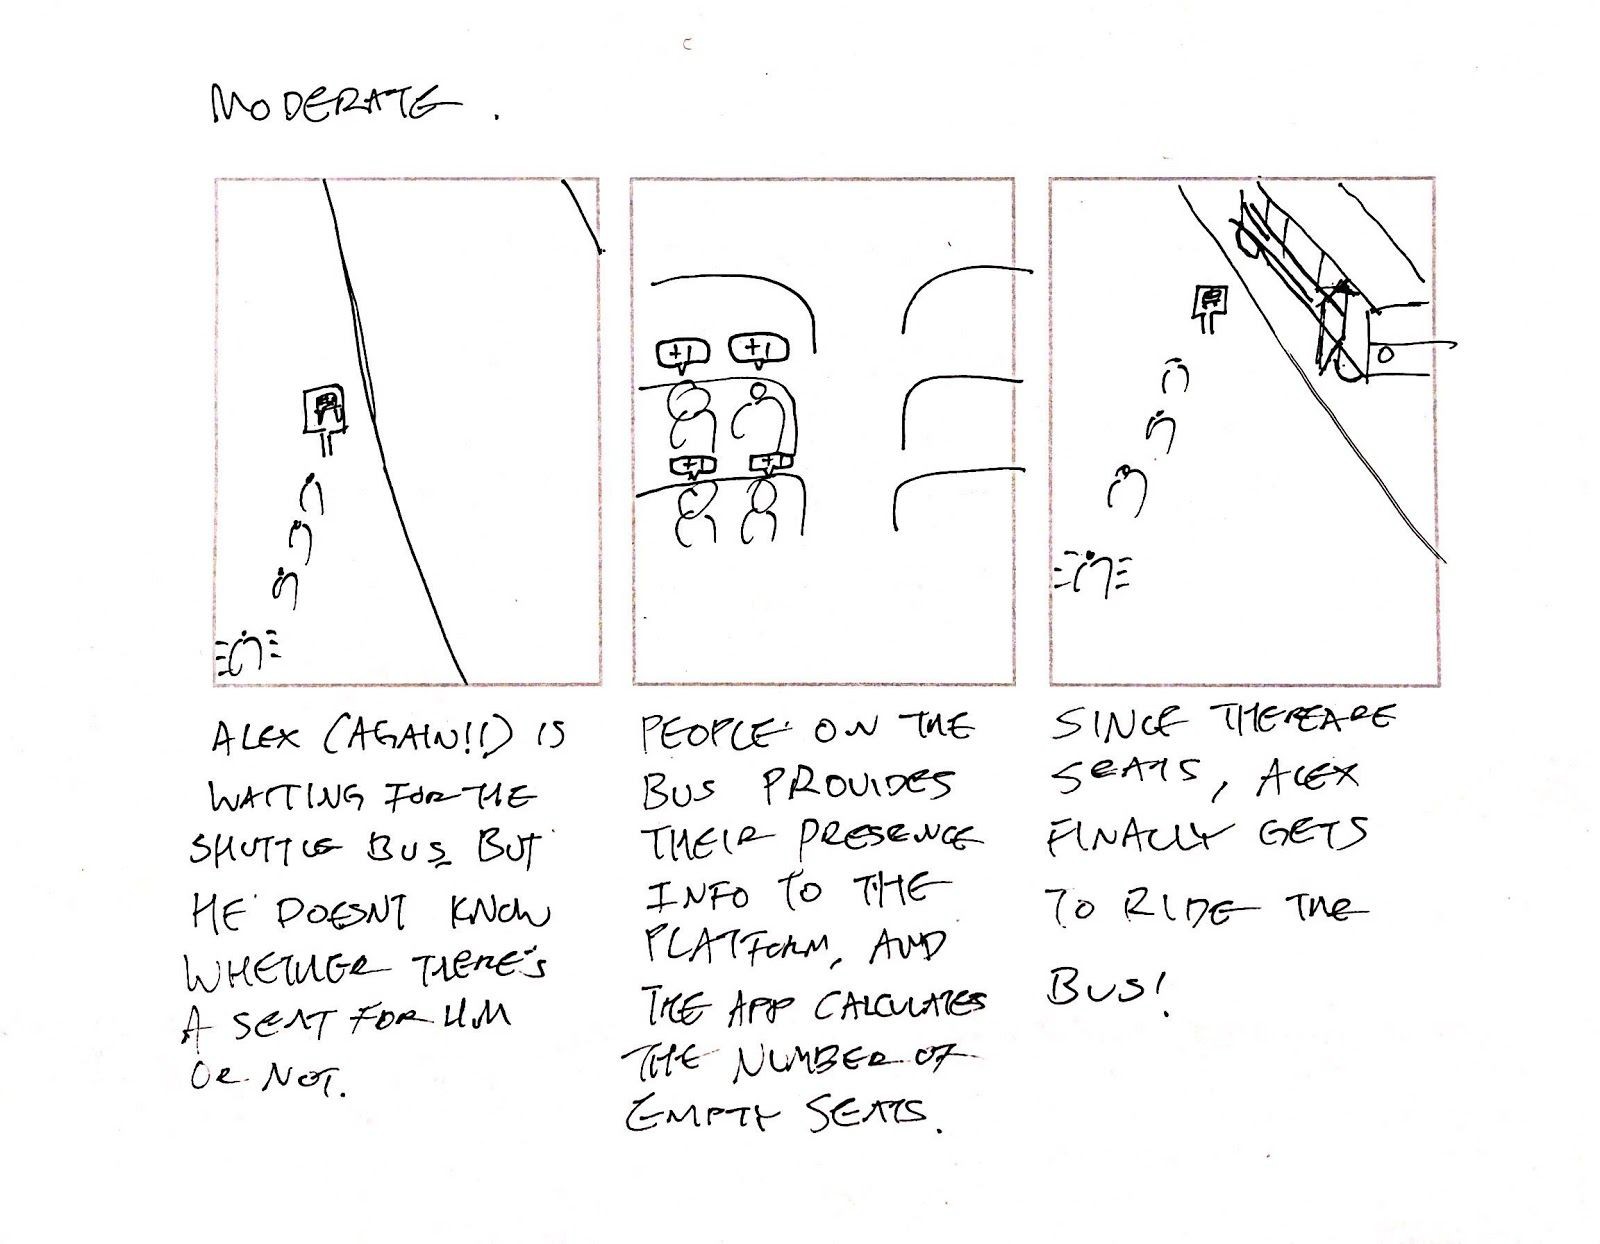 MODERATE.
+1 +1
+1 +1
ALEX (AGAIN!!) IS
WAITING FOR THE
SHUTTLE BUS BUT
HE DOESNT KNOW
WHETHER THERE'S
A SEAT FOR HIM
OR NOT.
PEOPLE ON THE
BUS PROVIDES
THEIR PRESENCE
INFO TO THE
PLATFORM, AND
THE APP CALCULATES
THE NUMBER OF
EMPTY SEATS.
SINCE THERE ARE
SEATS, ALEX
FINALLY GETS
TO RIDE THE
BUS!